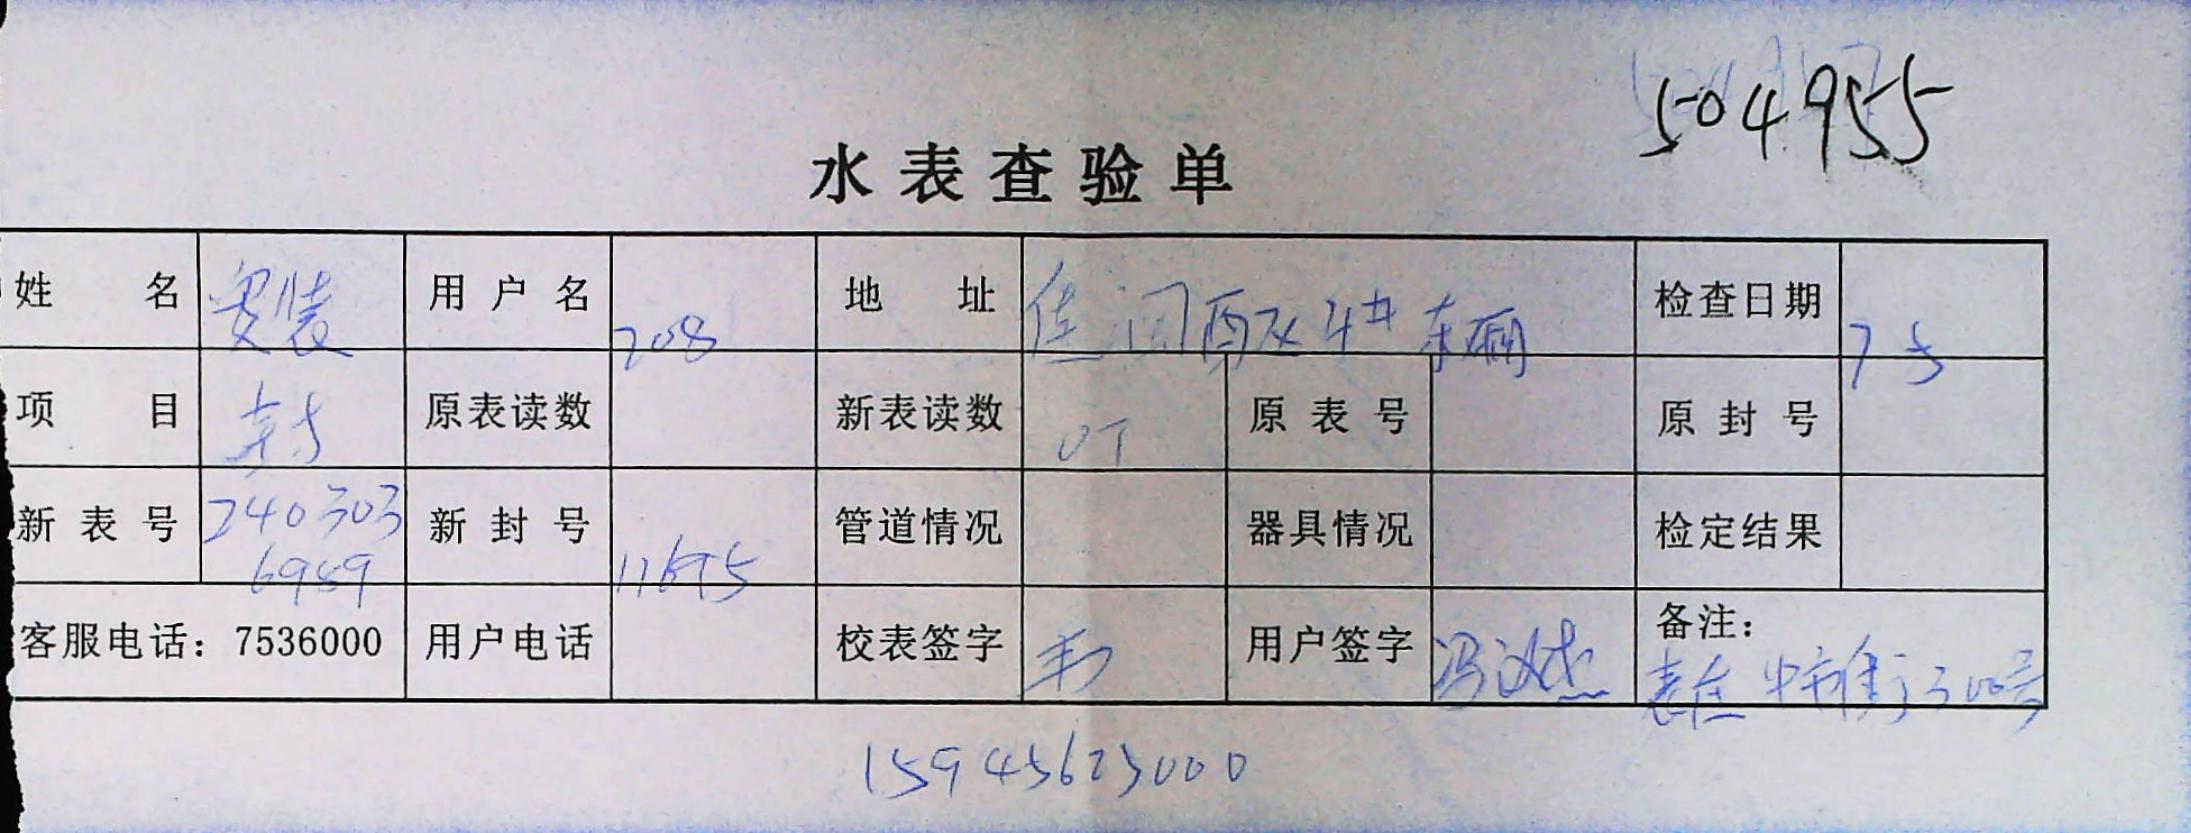 504955
水表查验单
姓名 安装 用户名 208 地址 佳润配件东厢 检查日期 7.5
项目 原表读数 新表读数 0T 原表号 原封号
新表号 2403036989 新封号 11695 管道情况 器具情况 检定结果
客服电话：7536000 用户电话 校表签字 用户签字 冯 备注：
表在 300号
15945623000